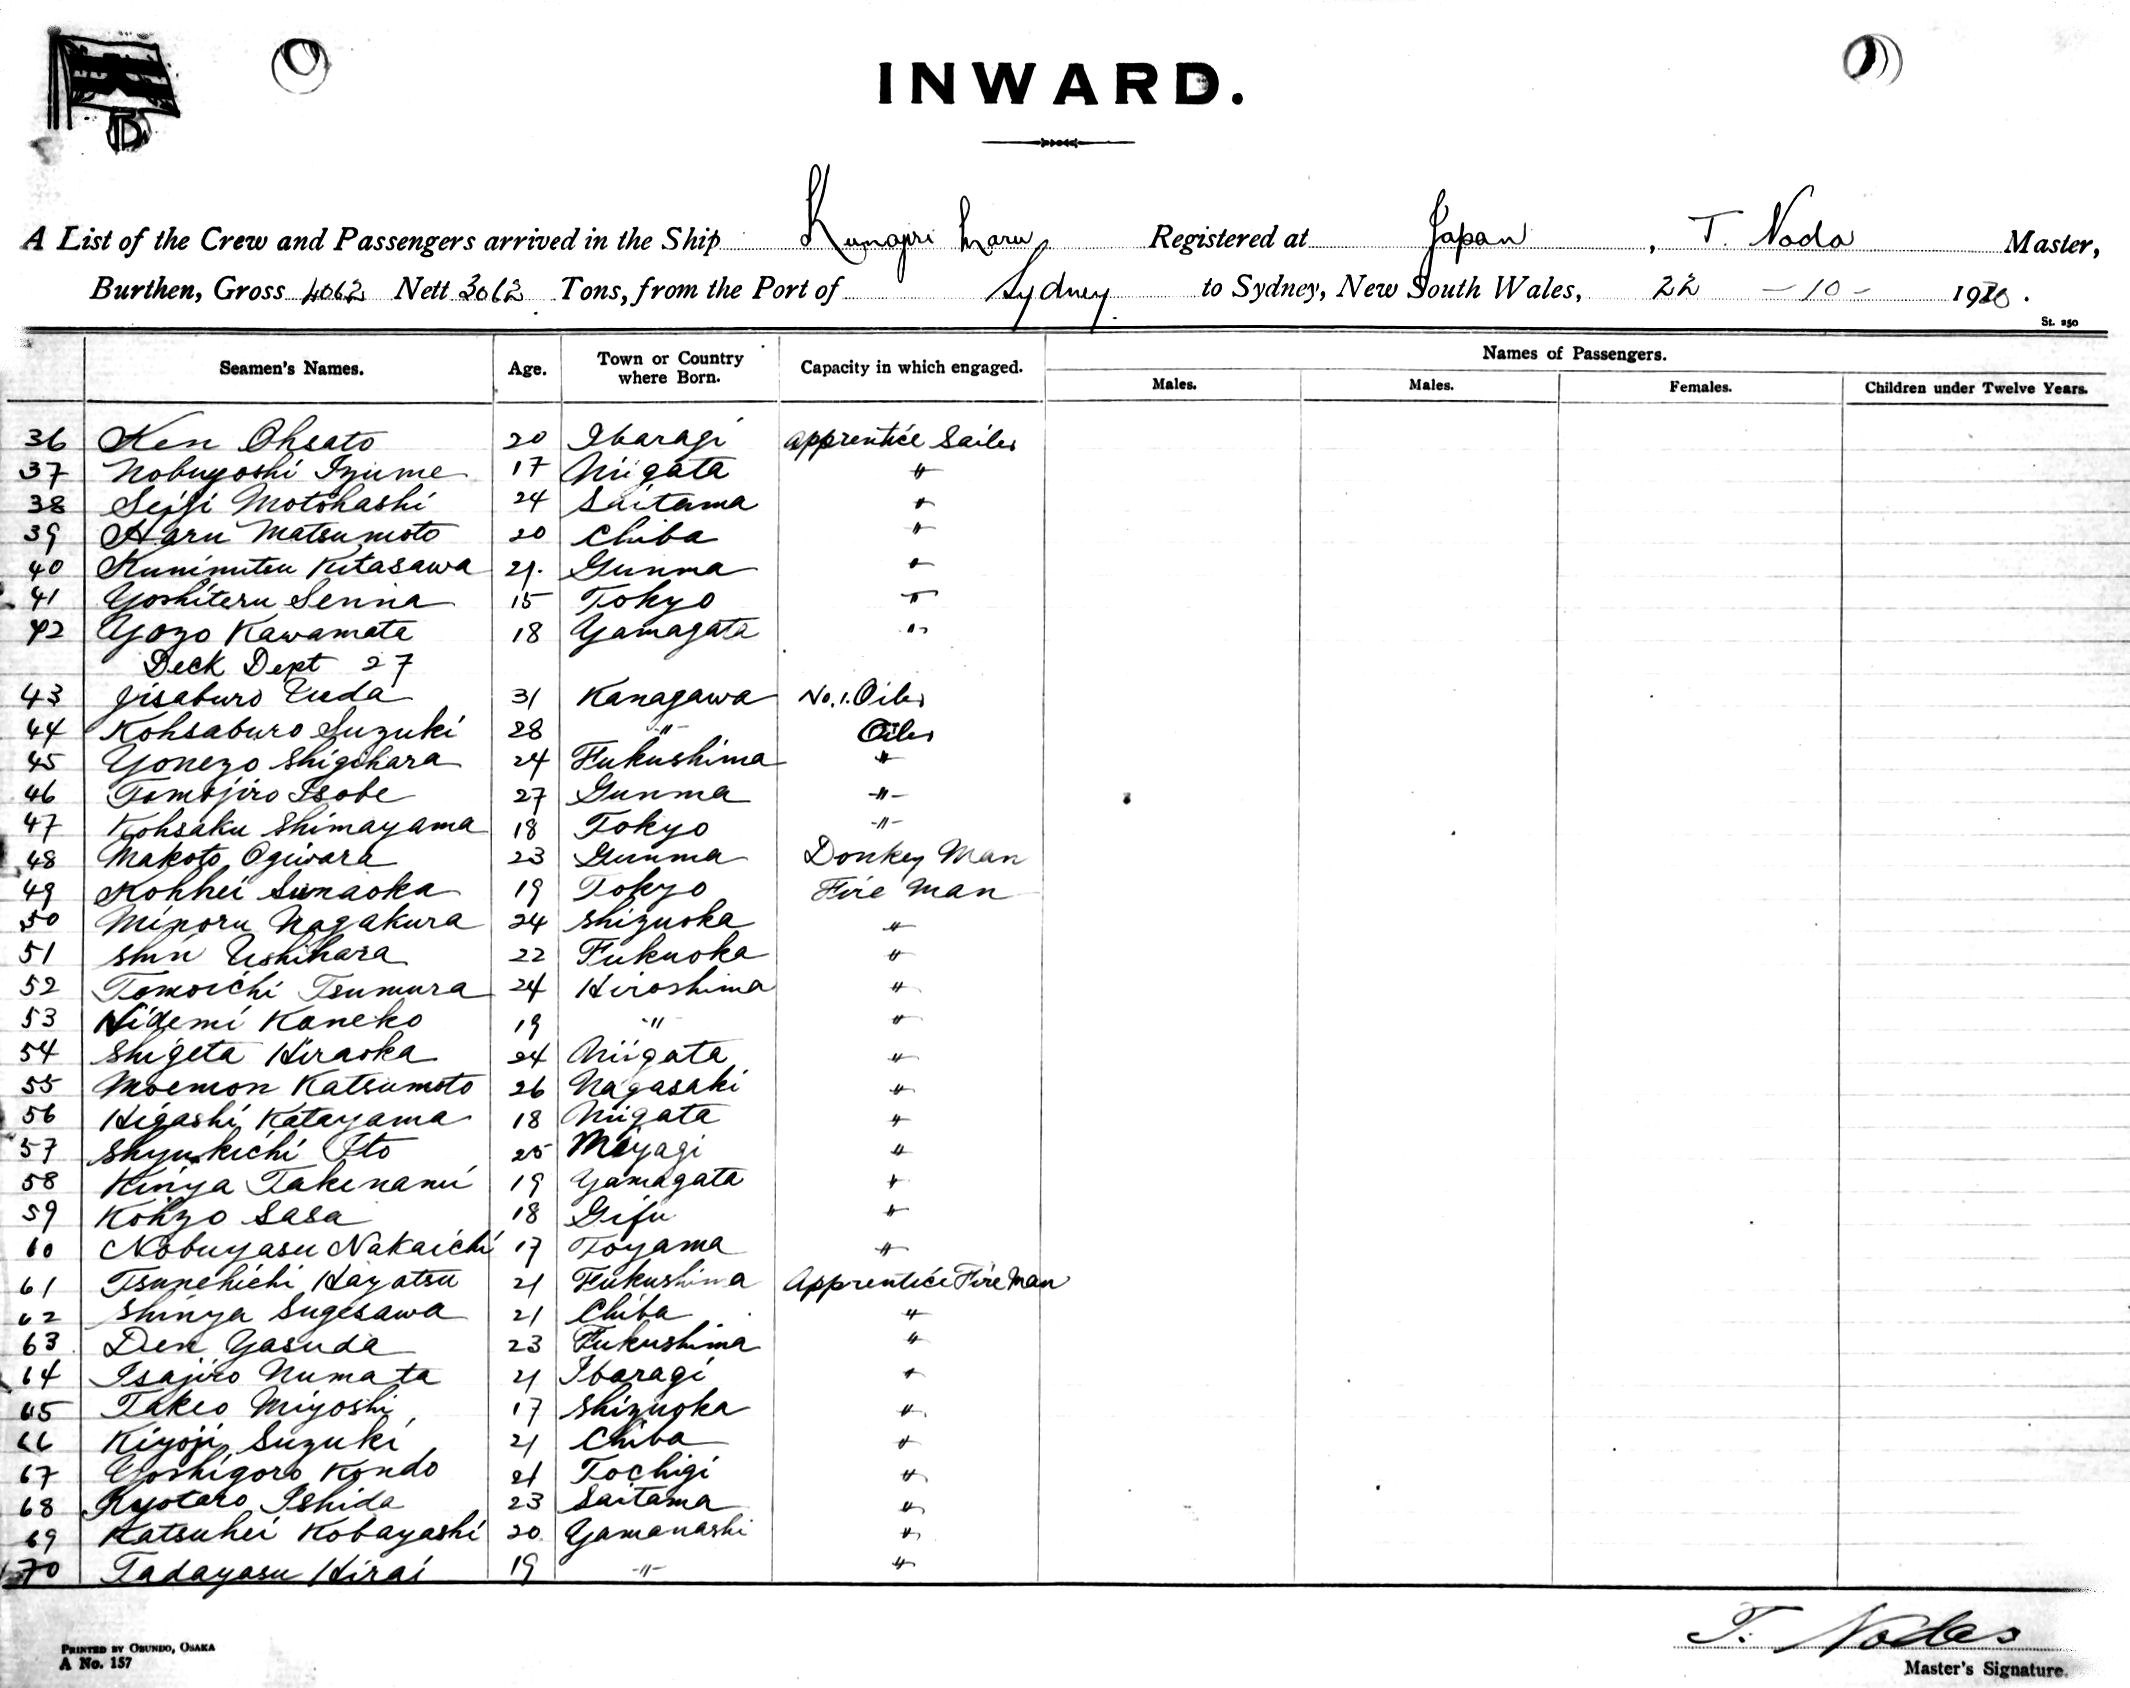 INWARD.
A List of the Crew and Passengers arrived in the Ship Kunajiri Maru Registered at Japan, T. Noda Master,
Burthen, Gross 4062 Nett 3062 Tons, from the Port of Sydney. to Sydney, New South Wales, 22 - 10 - 19
St. 250
Seamen's Names. Age. Town or Country where Born. Capacity in which engaged. Names of Passengers.
Males. Males. Females. Children under Twelve Years.
36 Ken Ohsato 20 Ibaragi Apprentice Sailor
37 Nobuyoshi Izume 17 Niigata "
38 Seiji Motohashi 24 Saitama "
39 Haru Matsumoto 20 Chiba "
40 Kunimitsu Kitasawa 21. Gunma "
41 Yoshiteru Senna 15 Tokyo "
42 Yozo Kawamata 18 Yamagata "
Deck Dept 27
43 Jisaburo Uuda 31 Kanagawa No. 1. Oiler
44 Kohsaburo Suzuki 28 " Oiler
45 Yonezo Shigihara 24 Fukushima "
46 Tomojiro Isobe 27 Gunma "
47 Kohsaku Shimayama 18 Tokyo "
48 Makoto Ogiwara 23 Gunma Donkey Man
49 Kohhei Sunaoka 19 Tokyo Fire Man
50 Minoru Nagakura 24 Shizuoka "
51 Shin Ushihara 22 Fukuoka "
52 Tomoichi Tsumura 24 Hiroshima "
53 Hidemi Kaneko 19 " "
54 Shigeta Hiraoka 24 Niigata "
55 Moemon Katsumoto 26 Nagasaki "
56 Higashi Katayama 18 Niigata "
57 Shyukichi Ito 25 Miyagi "
58 Kinya Takenami 19 Yamagata "
59 Kohzo Sasa 18 Gifu "
60 Nobuyasu Nakaichi 17 Toyama "
61 Tsunehichi Hayatsu 21 Fukushima Apprentice Fire Man
62 Shinya Sugesawa 21 Chiba "
63 Den Yasuda 23 Fukushima "
64 Isajiro Numata 21 Ibaragi "
65 Takeo Miyoshi 17 Shizuoka "
66 Kiyoji Suzuki 21 Chiba "
67 Yoshigoro Kondo 21 Tochigi "
68 Kyotaro Ishida 23 Saitama "
69 Katsuhei Kobayashi 20 Yamanashi "
70 Tadayasu Hirai 19 " "
T. Noda
Printed by Obundo, Osaka
A No. 157
Master's Signature.